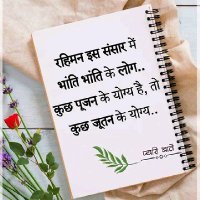 रहिमन इस संसार में
भांति भांति के लोग..
कुछ पूजन के योग्य है, तो
कुछ जूतन के योग्य..